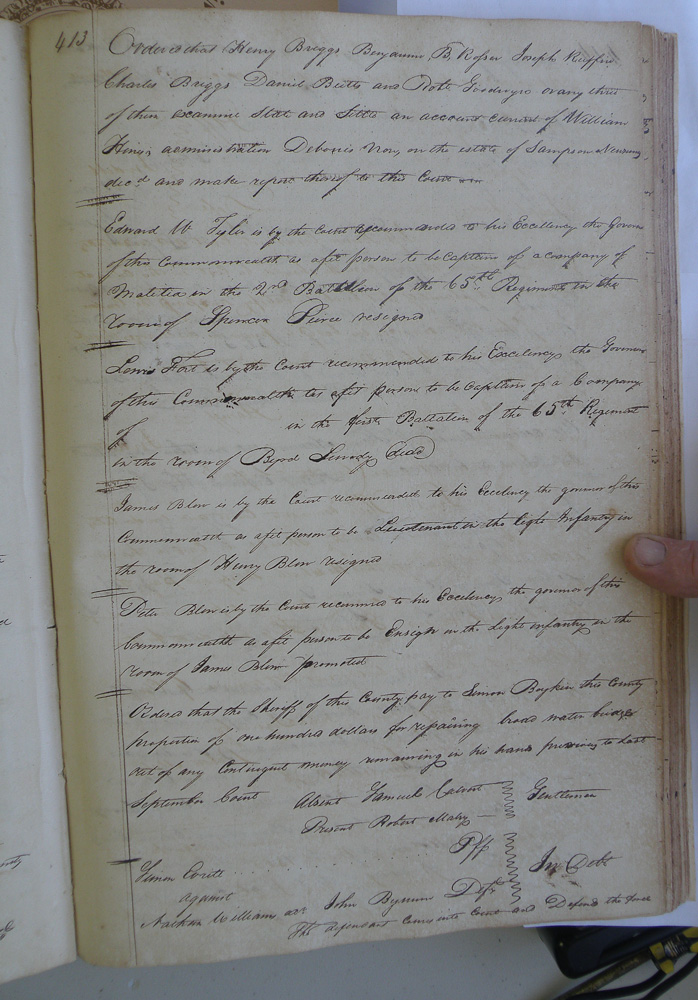 413
Ordered that Henry Briggs Benjamin B. Rosser Joseph Ruffin
Charles Briggs Daniel Butts and Robt Goodwyn or any three
of them examine State and Settle an account current of William
Hines administration Debonis Non, on the estate of Sampson Newsum
decd and make report thereof to this Court
Edward W Tyler is by the Court recommended to his Excellency the Governor
of this Commonwealth as a fit person to be Captain of a company of
Malitia in the 2nd Battalion of the 65th Regiment in the
room of Spencer Peirce resigned
Lewis Fort is by the Court recommended to his Excellency the Governor
of this Commonwealth as a fit person to be Captain of a Company
of in the first Battalion of the 65th Regiment
in the room of Byrd dead
James Blow is by the Court recommended to his Excelency the govenor of this
Commonwealth as a fit person to be Lieutenant in the light Infantry in
the room of Henry Blow resigned
Peter Blow is by the Court recummd to his Excellency the governor of this
Commonwealth as a fit person to be Ensign in the Light infantry in the
room of James Blow promoted
Ordered that the Sheriff of this County pay to Simon Boykin this County
proportion of one hundred dollars for repairing broad water bridge
out of any Contingent money remaining in his hands previous to last
September Court Absent Samuel Calvert Gentleman
Present Robert Mabry
Plf
Simon Everitt In Debt
against
Nathan Williams assr John Bynum Deft
The defendant Comes into Court and Defend the force